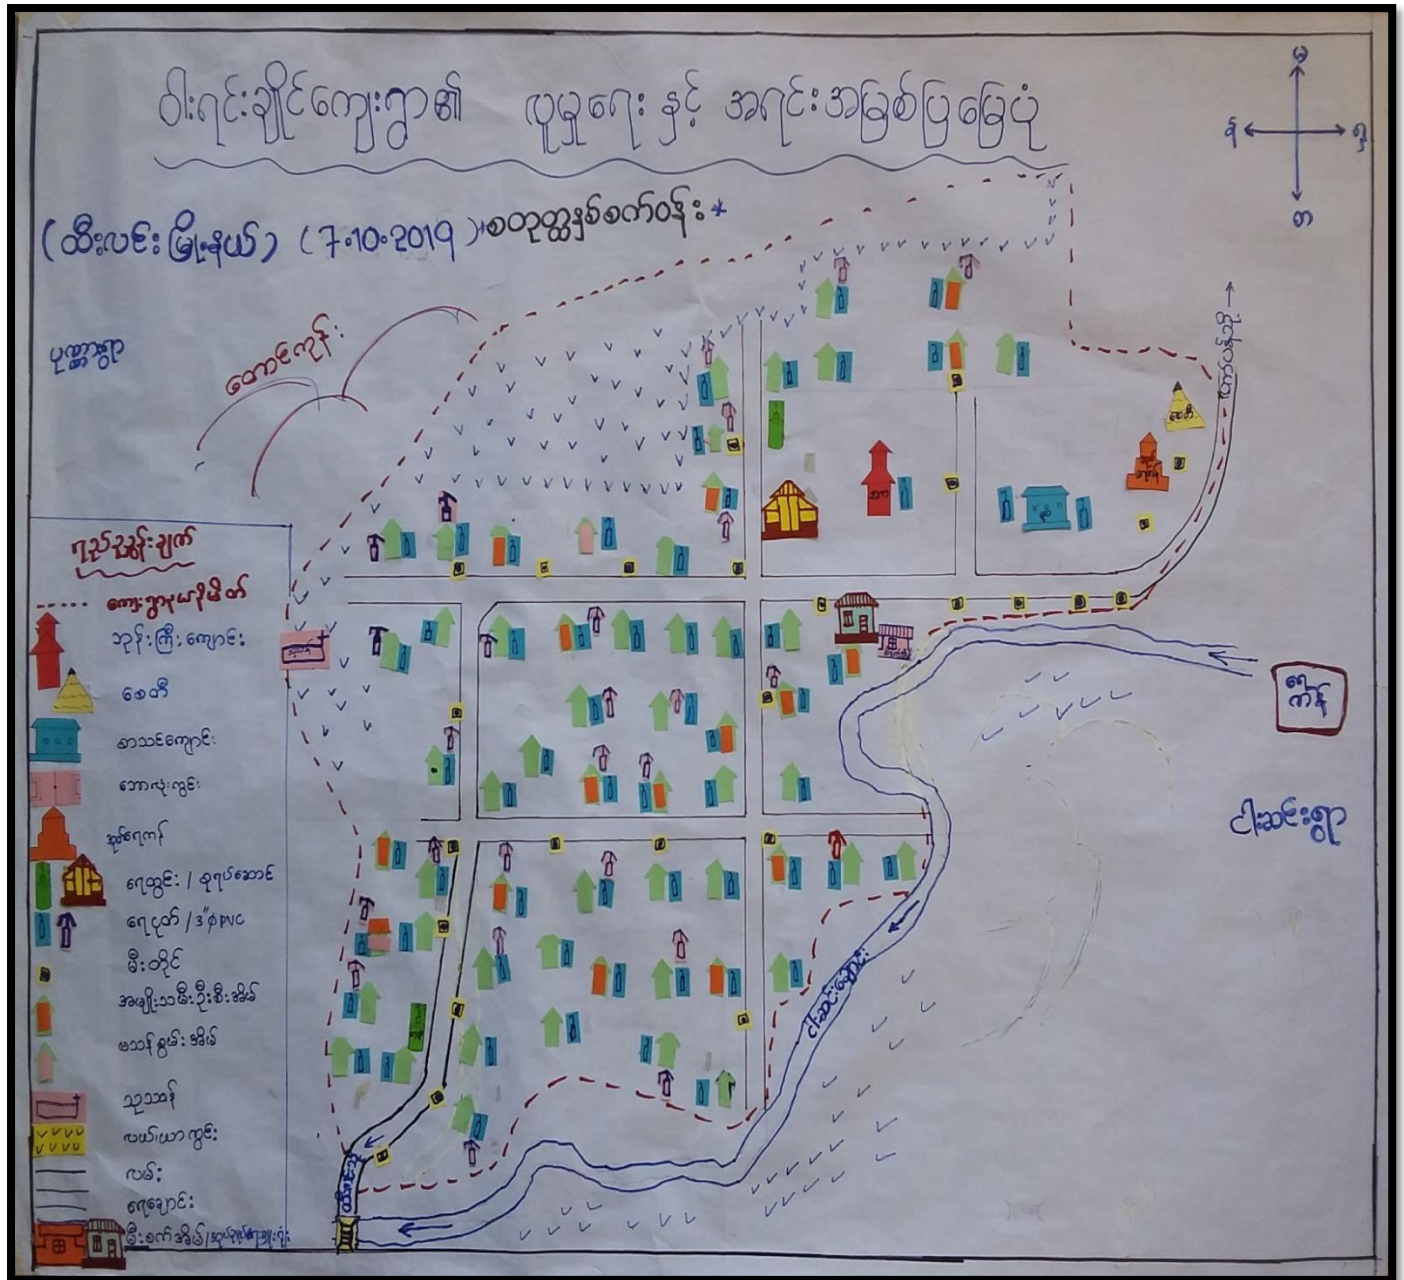 ဝါးရင်းချိုင်ကျေးရွာ၏ လူမှုရေး နှင့် အရင်းအမြစ်ပြမြေပုံ
(ထီးလင်းမြို့နယ်) (7.10.2019) စတုတ္ထနှစ်စက်ဝန်း*
မ
န
ရှ
တ
ပုဏ္ဏားရွာ
တောင်ကုန်း
စေတီ
ရေကန်
ငါးဆင်းရွာ
ငါးဆင်းချောင်း
ရည်ညွှန်းချက်
ကျေးရွာနယ်နိမိတ်
ဘုန်းကြီးကျောင်း
စေတီ
စာသင်ကျောင်း
ဘောလုံးကွင်း
အုတ်ရေကန်
ရေတွင်း / ဓမ္မာရုံ
ရေငုတ် / 3"φ PVC
မီးတိုင်
အမျိုးသမီးဦးစီးအိမ်
မသန်စွမ်းအိမ်
သုသာန်
လယ်/ယာကွင်း
လမ်း
ရေချောင်း